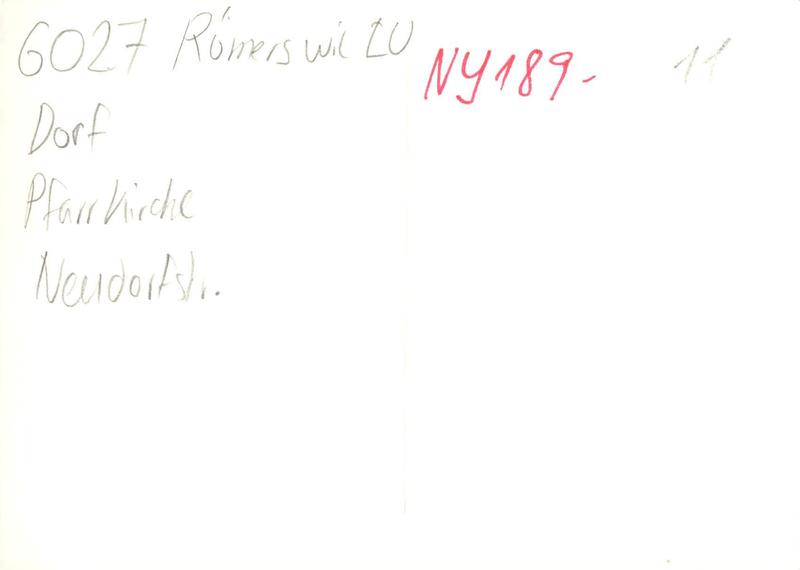 6027 Römerswil LU
NY189- 11
Dorf
Pfarrkirche
Neudorfstr.